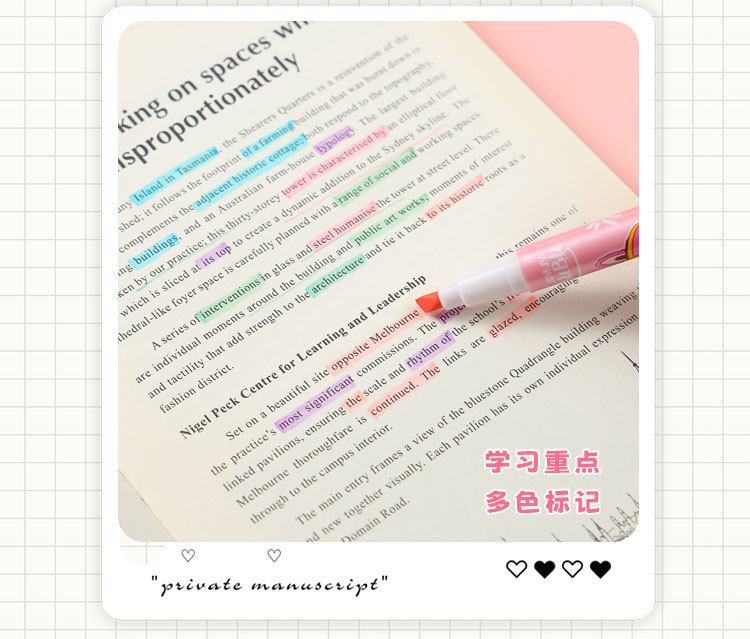 king on spaces
sproportionately
the Shearers Quarters is a reinvention of the
Island in Tasmania
shed; it follows the footprint of a farming building that was burnt down in
complements the adjacent historic cottage; both respond to the topography,
buildings, and an Australian farm-house typology. The largest building
by our practice; this thirty-storey tower is characterised by an elliptical floor
which is sliced at its top to create a dynamic addition to the Sydney skyline. The
hedral-like foyer space is carefully planned with a range of social and working spaces.
A series of interventions in glass and steel humanise the tower at street level. There
are individual moments around the building and public art works; moments of interest
and tactility that add strength to the architecture and tie it back to its historic roots as a
fashion district.
Nigel Peck Centre for Learning and Leadership
Set on a beautiful site opposite Melbourne this remains one of
the practice's most significant commissions. The
linked pavilions, ensuring the scale and rhythm of the school's
Melbourne thoroughfare is continued. The links are glazed, encouraging
through to the campus interior.
The main entry frames a view of the bluestone Quadrangle building weaving
nd new together visually. Each pavilion has its own individual expression
Domain Road.
学习重点
多色标记
"private manuscript"